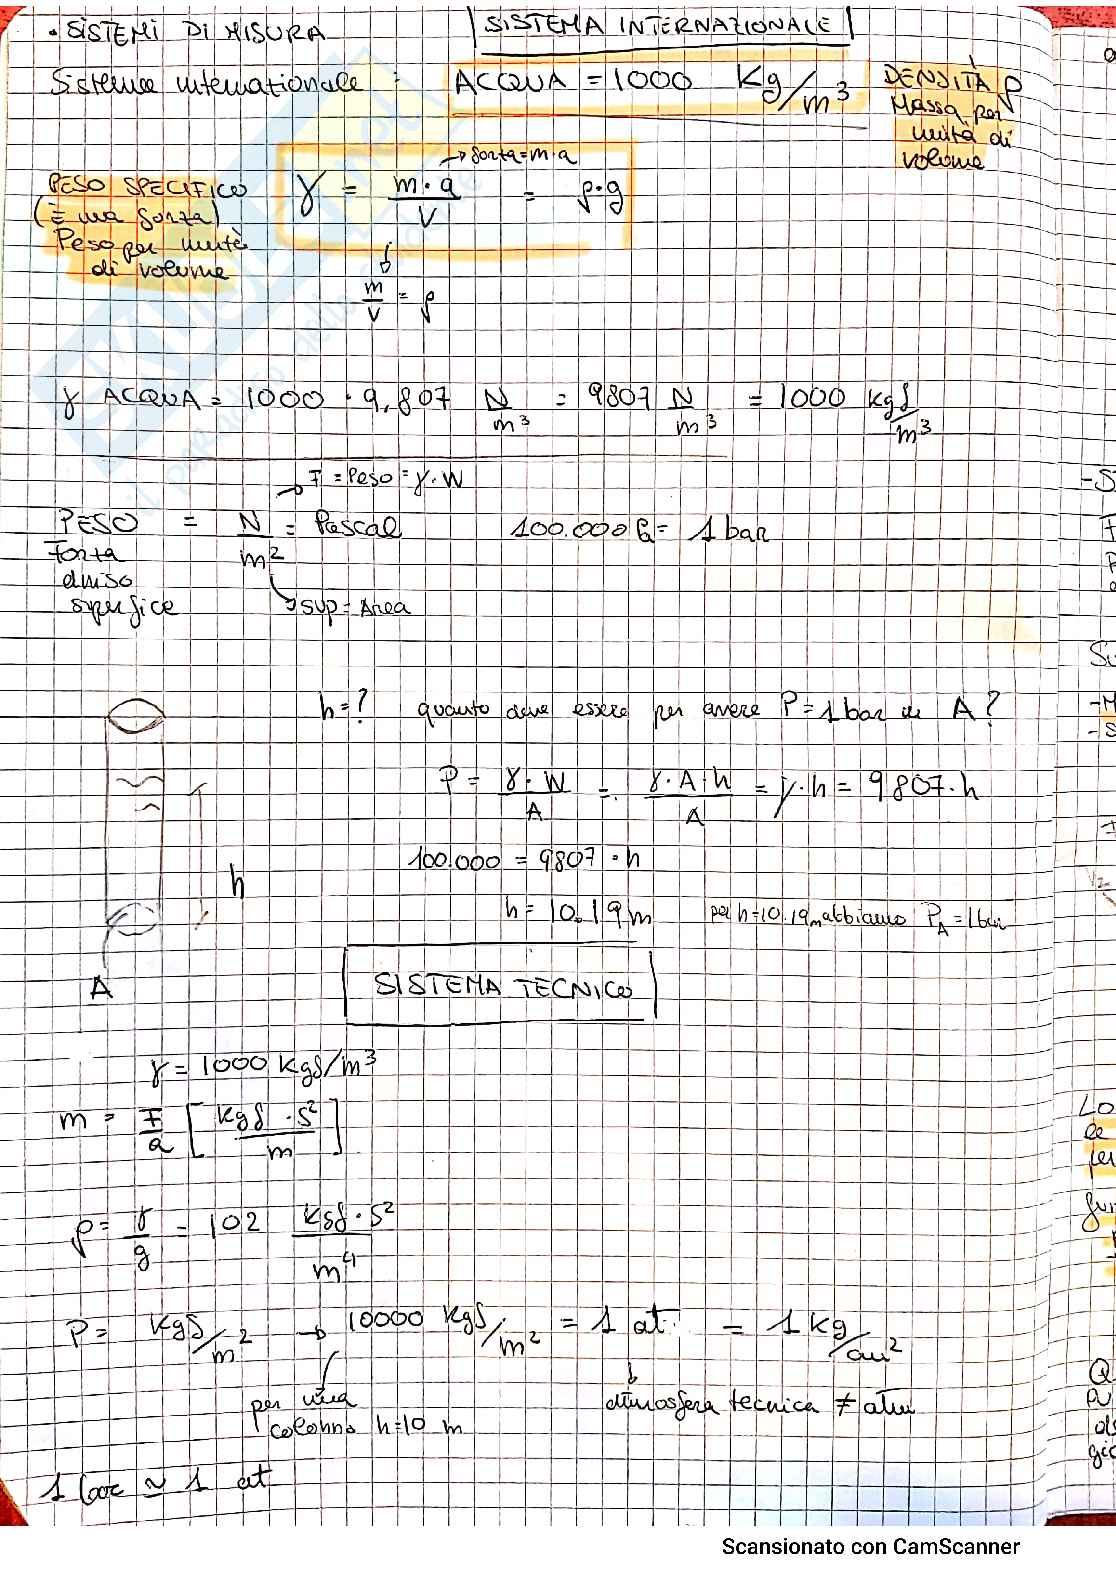 • SISTEMI DI MISURA
SISTEMA INTERNAZIONALE
Sistema internazionale : ACQUA = 1000 Kg/m³
DENSITÀ ρ
Massa per
unità di
volume
→ forza = m·a
PESO SPECIFICO
(È una forza)
Peso per unità
di volume
γ = m·g/V = ρ·g
m/V = ρ
γ ACQUA = 1000 · 9,807 N/m³ = 9807 N/m³ = 1000 kgf/m³
→ F = Peso = γ·W
PESO = N/m² = Pascal 100.000 Pa = 1 bar
Forza
diviso
superfice
→ sup = Area
h = ? quanto deve essere per avere P = 1 bar in A?
P = γ·W/A = γ·A·h/A = γ·h = 9807·h
100.000 = 9807 · h
h
h = 10.19 m per h=10.19m abbiamo P_A = 1 bar
A
SISTEMA TECNICO
γ = 1000 kgf/m³
m = F/a [kgf · s²/m]
ρ = γ/g = 102 kgf · s²/m⁴
P = kgf/m² → 10000 kgf/m² = 1 at = 1 kg/cm²
per una
colonna h=10 m
atmosfera tecnica ≠ atm
1 bar ≃ 1 at
Scansionato con CamScanner